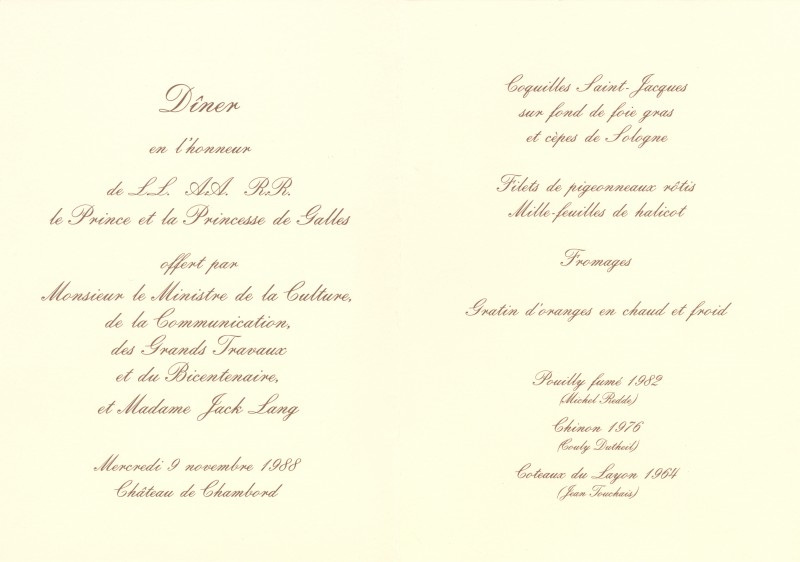 Dîner
en l'honneur
de L.L. A.A. R.R.
le Prince et la Princesse de Galles
offert par
Monsieur le Ministre de la Culture,
de la Communication,
des Grands Travaux
et du Bicentenaire,
et Madame Jack Lang
Mercredi 9 novembre 1988
Château de Chambord
Coquilles Saint-Jacques
sur fond de foie gras
et cèpes de Sologne
Filets de pigeonneaux rôtis
Mille-feuilles de halicot
Fromages
Gratin d'oranges en chaud et froid
Pouilly fumé 1982
(Michel Redde)
Chinon 1976
(Couly Dutheil)
Coteaux du Layon 1964
(Jean Touchais)